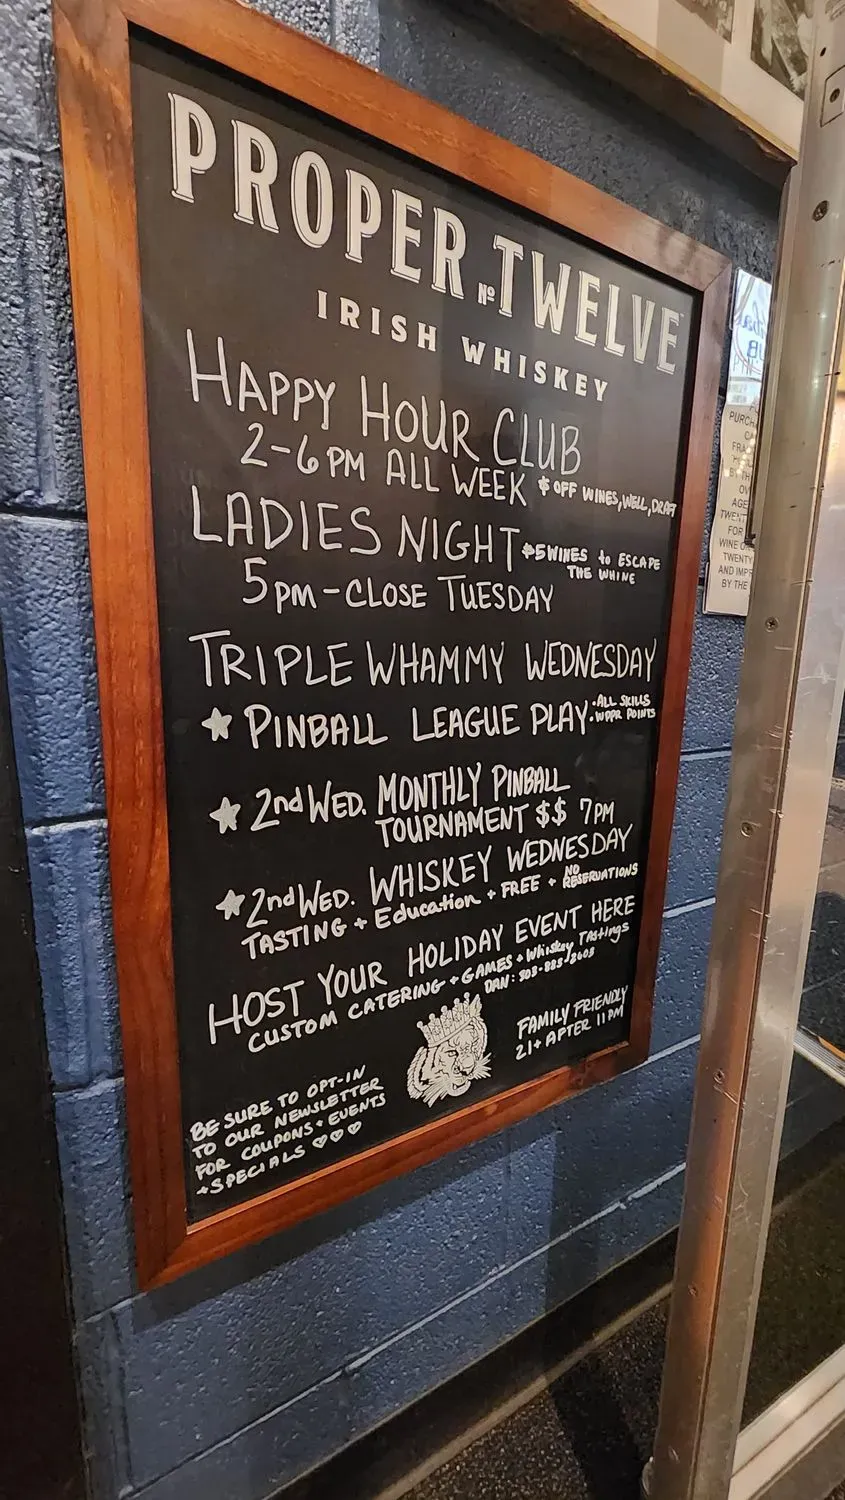 PROPER Nº TWELVE
IRISH WHISKEY
HAPPY HOUR CLUB
2-6PM ALL WEEK $ OFF WINES, WELL, DRAFT
LADIES NIGHT $5 WINES to ESCAPE
THE WHINE
5PM-CLOSE TUESDAY
TRIPLE WHAMMY WEDNESDAY
★ PINBALL LEAGUE PLAY •ALL SKILLS
•WPPR POINTS
★ 2nd WED. MONTHLY PINBALL
TOURNAMENT $$ 7PM
★ 2nd WED. WHISKEY WEDNESDAY
TASTING + Education + FREE + NO RESERVATIONS
HOST YOUR HOLIDAY EVENT HERE
CUSTOM CATERING + GAMES + Whiskey Tastings
DAN:
FAMILY FRIENDLY
21+ AFTER 11PM
BE SURE TO OPT-IN
TO OUR NEWSLETTER
FOR COUPONS + EVENTS
+ SPECIALS ♡♡♡
PURCH
FRA
BY TH
OV
AGE
TWENT
FOR
WINE O
TWENTY
AND IMP
BY THE